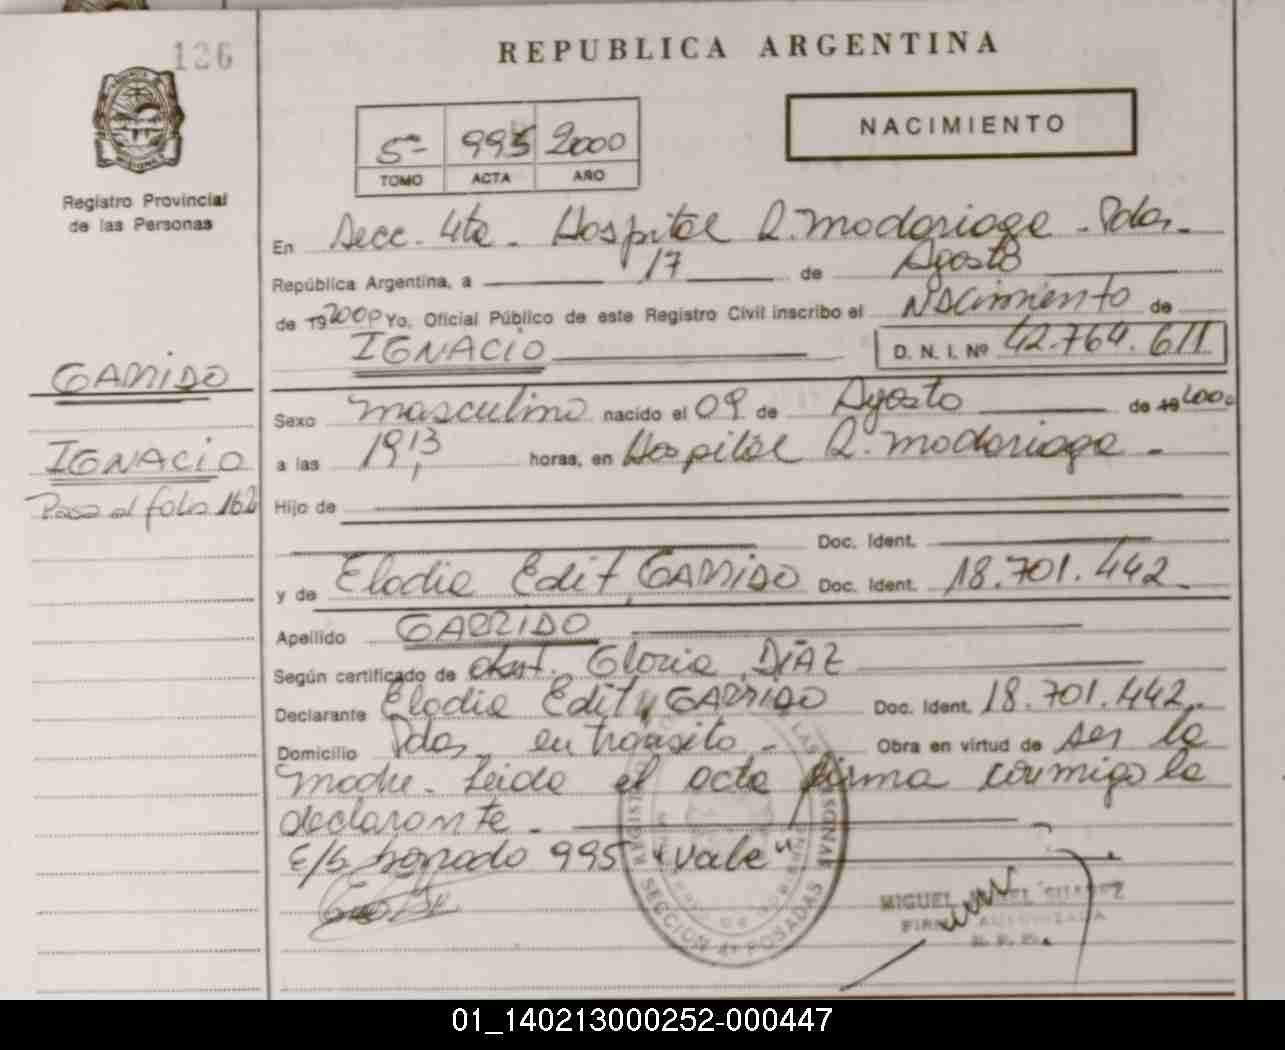 126
REPUBLICA ARGENTINA
NACIMIENTO
5- 995 2000
TOMO ACTA AÑO
Registro Provincial
de las Personas
En Secc. 4ta. Hospital R. Madariaga - Pdas.
República Argentina, a 17 de Agosto
de 192000 Yo, Oficial Público de este Registro Civil inscribo el Nacimiento de
IGNACIO D. N. I. Nº 42.764.611
GARRIDO
IGNACIO
Pasa al folio 162
Sexo masculino nacido el 09 de Agosto de 19 2000
a las 19,13 horas, en Hospital R. Madariaga -
Hijo de
Doc. Ident.
y de Elodia Edit GARRIDO Doc. Ident. 18.701.442
Apellido GARRIDO
Según certificado de obst. Gloria DIAZ
Declarante Elodia Edit GARRIDO Doc. Ident. 18.701.442
Domicilio Pdas. en tránsito - Obra en virtud de ser la
madre. Leida el acta firma conmigo la
declarante -
E/S borrado 995 "vale"
REGISTRO LAS PERSONAS
SECCION 4ª POSADAS
MIGUEL SUAREZ
FIRMA AUTORIZADA
R. P. P.
01_140213000252-000447